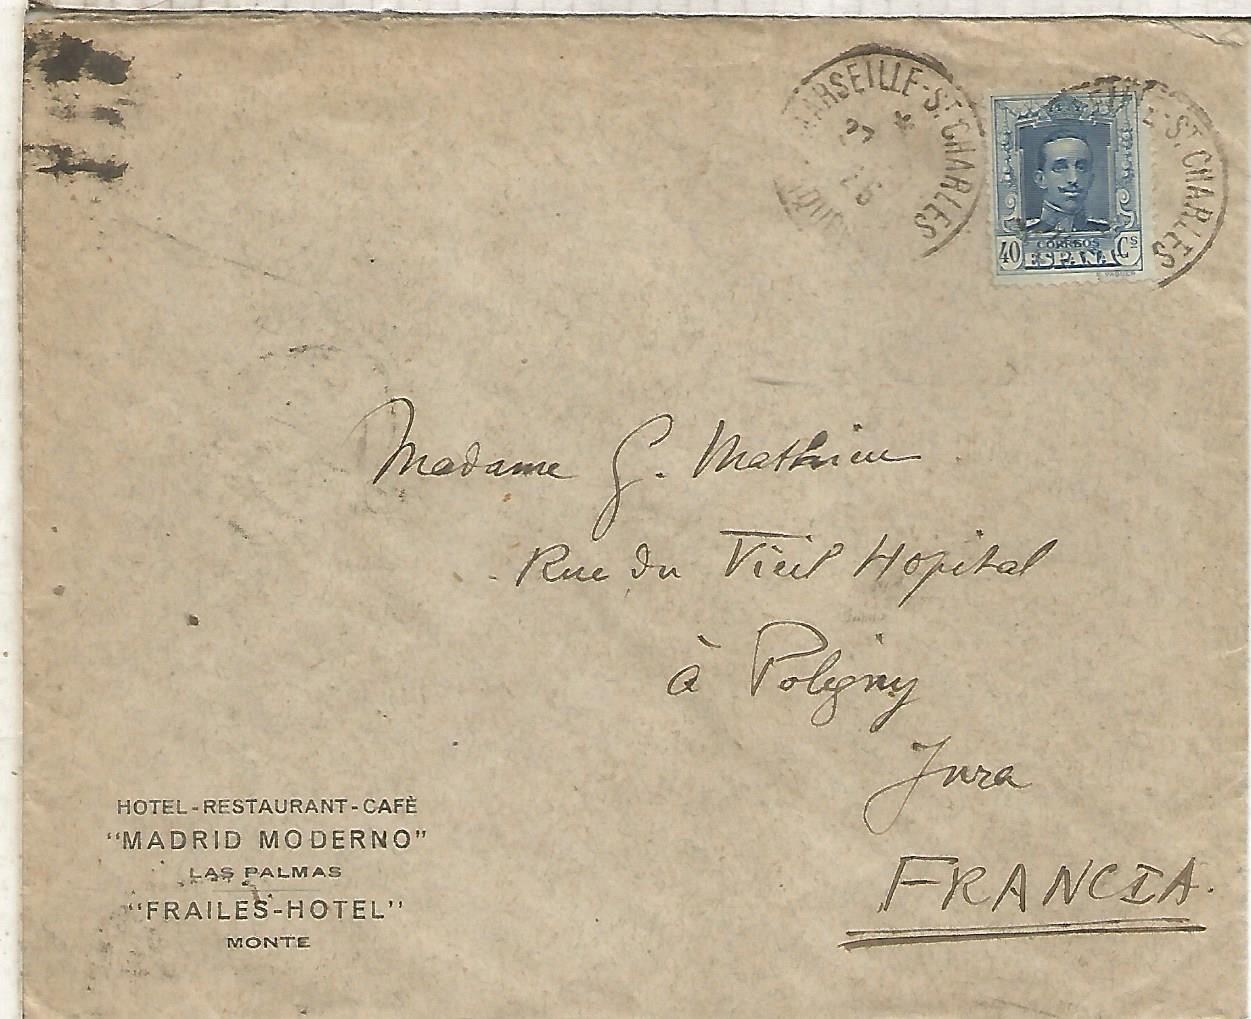 MARSEILLE-ST CHARLES
ST CHARLES
CORREOS
40 ESPAÑA Cs
Madame G. Mathieu
Rue du Vieil Hôpital
à Poligny
Jura
FRANCIA.
HOTEL-RESTAURANT-CAFÈ
"MADRID MODERNO"
LAS PALMAS
"FRAILES-HOTEL"
MONTE